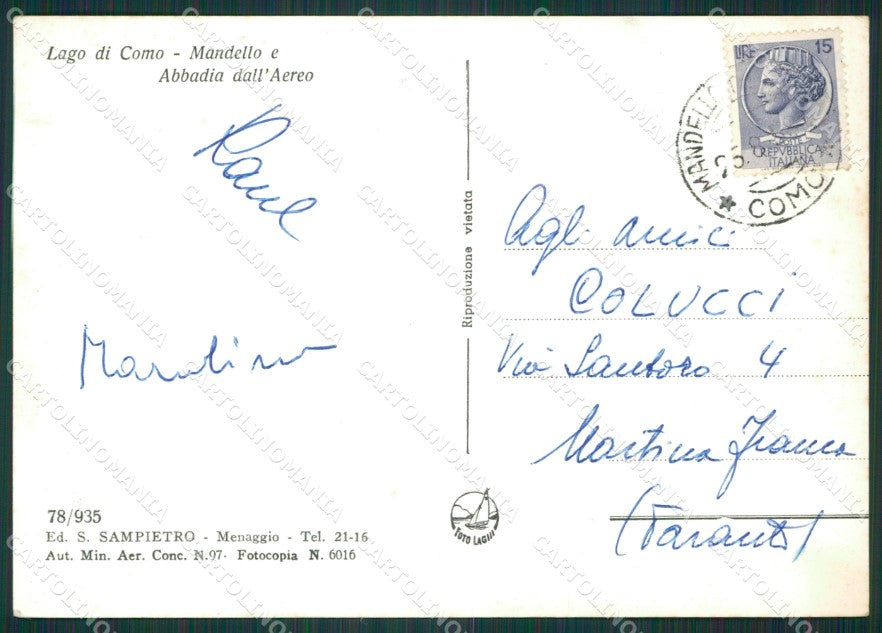 Lago di Como - Mandello e
Abbadia dall'Aereo
LIRE 15
POSTE
REPVBBLICA
ITALIANA
MANDELLO
COMO
Riproduzione vietata
Agli amici
COLUCCI
Via Santoro 4
Martina Franca
(Taranto)
78/935
Ed. S. SAMPIETRO - Menaggio - Tel. 21-16
Aut. Min. Aer. Conc. N.97- Fotocopia N. 6016
FOTO LAGHI
CARTOLINOMANIA